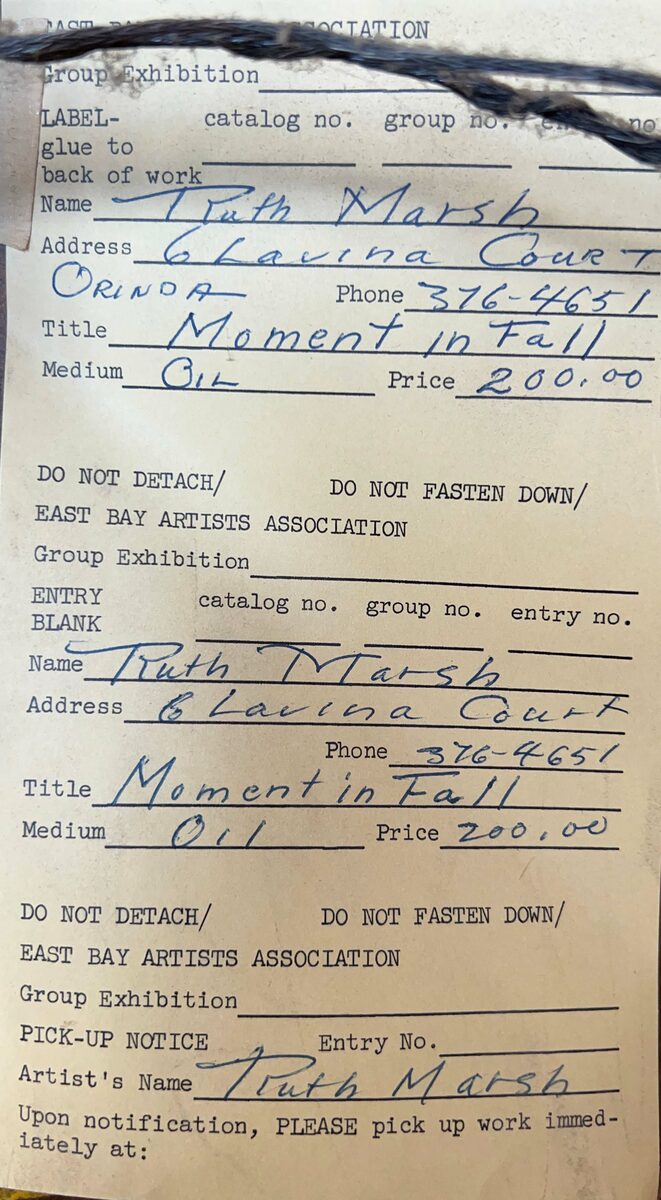 EAST BAY ASSOCIATION
Group Exhibition
LABEL- catalog no. group no. no
glue to
back of work
Name Ruth Marsh
Address 6 Lavina Court
Orinda Phone 376-4651
Title Moment in Fall
Medium Oil Price 200.00
DO NOT DETACH/ DO NOT FASTEN DOWN/
EAST BAY ARTISTS ASSOCIATION
Group Exhibition
ENTRY catalog no. group no. entry no.
BLANK
Name Ruth Marsh
Address 6 Lavina Court
Phone 376-4651
Title Moment in Fall
Medium Oil Price 200.00
DO NOT DETACH/ DO NOT FASTEN DOWN/
EAST BAY ARTISTS ASSOCIATION
Group Exhibition
PICK-UP NOTICE Entry No.
Artist's Name Ruth Marsh
Upon notification, PLEASE pick up work immed-
iately at: